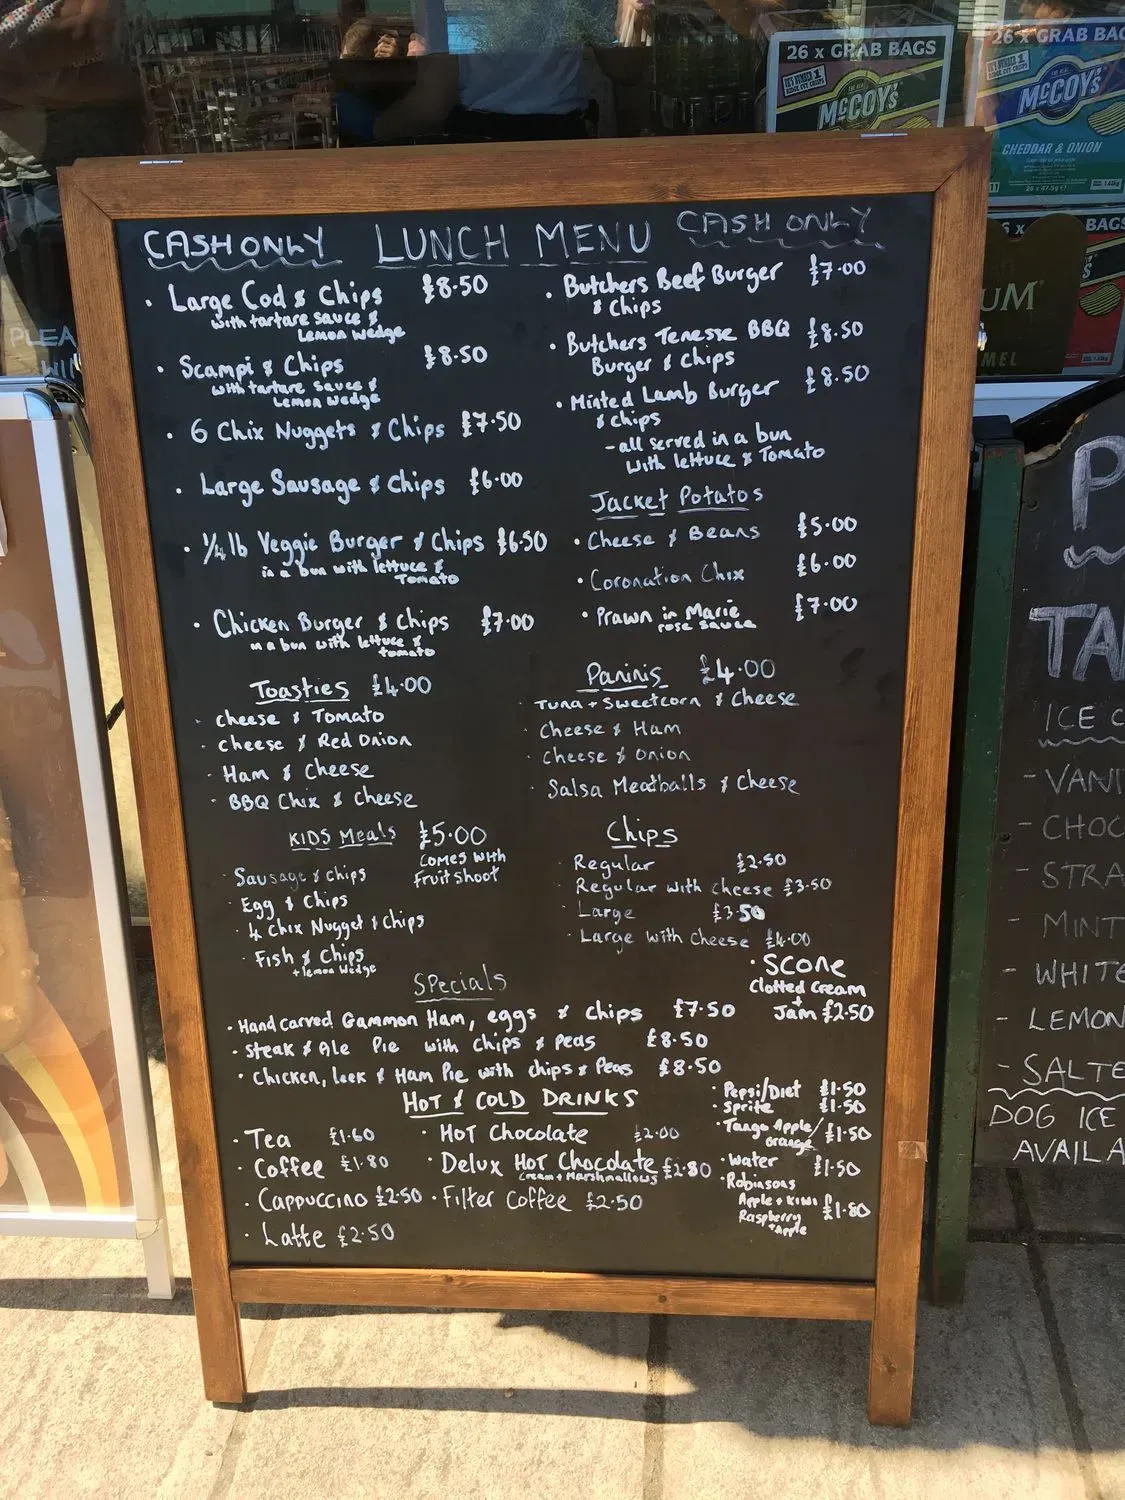 26 x GRAB BAGS
McCOY'S
26 x GRAB BAG
McCOY'S
CHEDDAR & ONION
26 x 47.5g e
BAGS
UM
MEL
PLEA
WI
CASH ONLY LUNCH MENU CASH ONLY
• Large Cod & Chips £8.50
with tartare sauce &
Lemon wedge
• Scampi & Chips £8.50
with tartare sauces &
Lemon wedge
• 6 Chix Nuggets & Chips £7.50
• Large Sausage & Chips £6.00
• 1/4 lb Veggie Burger & Chips £6.50
in a bun with lettuce &
Tomato
• Chicken Burger & Chips £7.00
in a bun with lettuce &
tomato
• Butchers Beef Burger £7.00
& Chips
• Butchers Tenesse BBQ £8.50
Burger & Chips
• Minted Lamb Burger £8.50
& chips
- all served in a bun
with lettuce & Tomato
Jacket Potatos
• Cheese & Beans £5.00
• Coronation Chix £6.00
• Prawn in Marie £7.00
rose sauce
Toasties £4.00
• cheese & Tomato
• cheese & Red Onion
• Ham & Cheese
• BBQ Chix & Cheese
Paninis £4.00
• Tuna + Sweetcorn & Cheese
• Cheese & Ham
• Cheese & Onion
• Salsa Meatballs & Cheese
KIDS Meals £5.00
comes with
fruitshoot
• Sausage & chips
• Egg & Chips
• 4 chix Nugget & Chips
• Fish & Chips
+ lemon wedge
Chips
• Regular £2.50
• Regular with cheese £3.50
• Large £3.50
• Large with cheese £4.00
• Scone
Clotted Cream
+
Jam £2.50
Specials
• Hand carved Gammon Ham, eggs & chips £7.50
• Steak & Ale Pie with chips & peas £8.50
• Chicken, leek & Ham Pie with chips & Peas £8.50
HOT & COLD DRINKS
• Tea £1.60
• Coffee £1.80
• Cappuccino £2.50
• Latte £2.50
• Hot Chocolate £2.00
• Delux Hot Chocolate £2.80
cream + Marshmallows
• Filter Coffee £2.50
• Pepsi/Diet £1.50
• Sprite £1.50
• Tango Apple/ £1.50
orange
• Water £1.50
• Robinsons
Apple + Kiwi £1.80
Raspberry
+ Apple
P
TA
ICE C
- VANI
- CHOC
- STRA
- MINT
- WHITE
- LEMON
- SALTE
DOG ICE
AVAILA